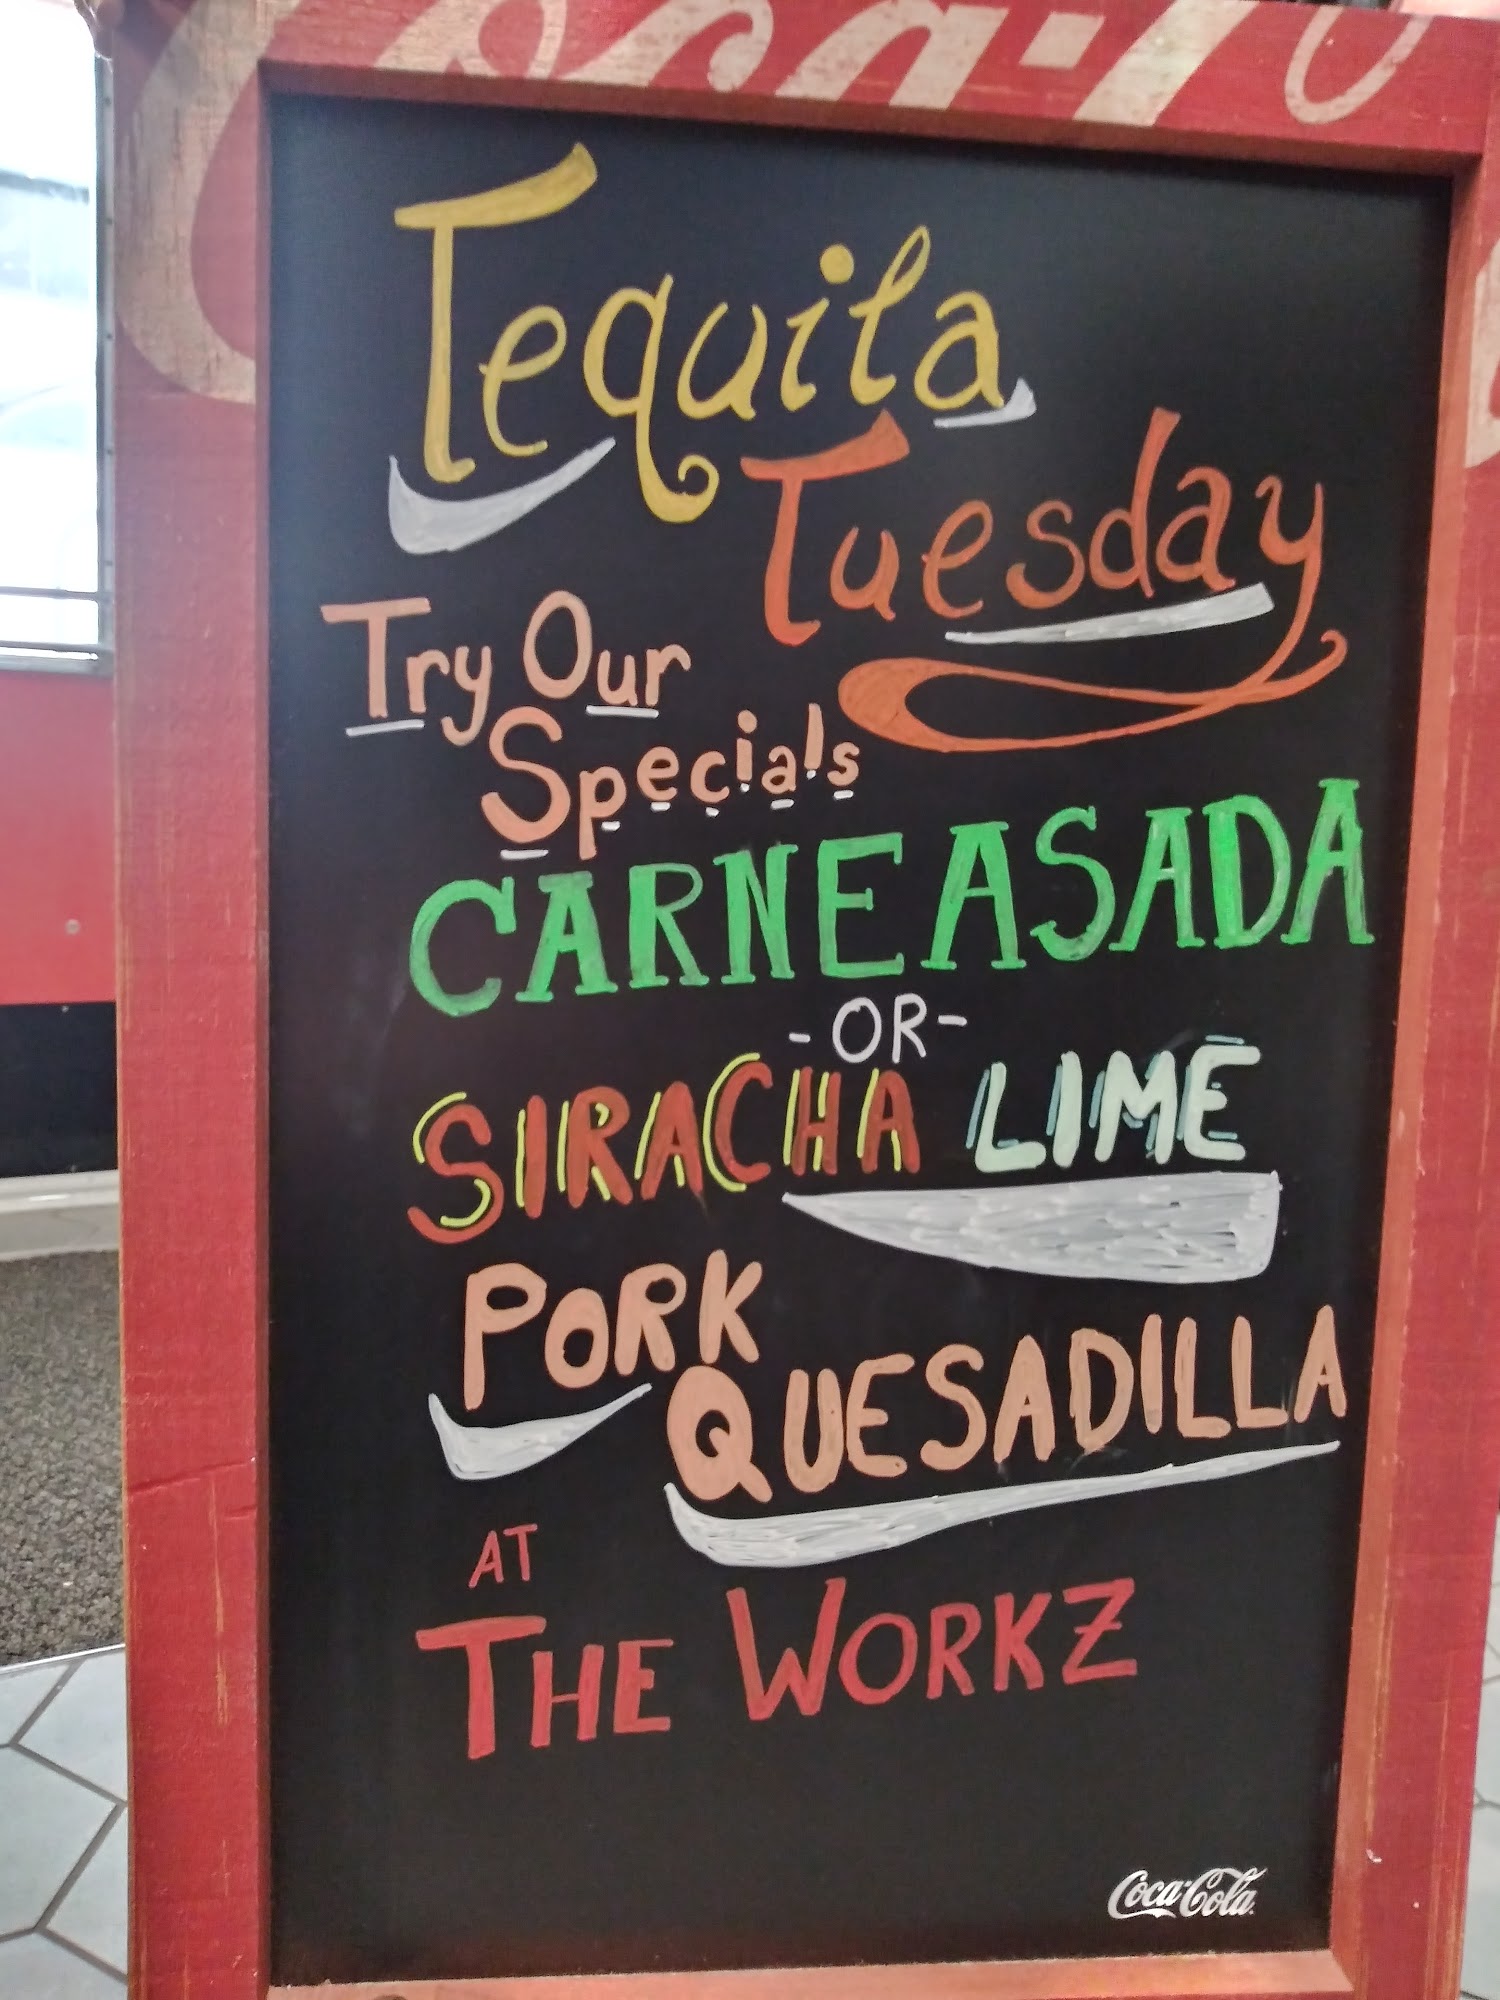 Coca-Co
Tequila
Tuesday
Try Our
Specials
CARNE ASADA
-OR-
SIRACHA LIME
PORK
QUESADILLA
AT
THE WORKZ
Coca-Cola